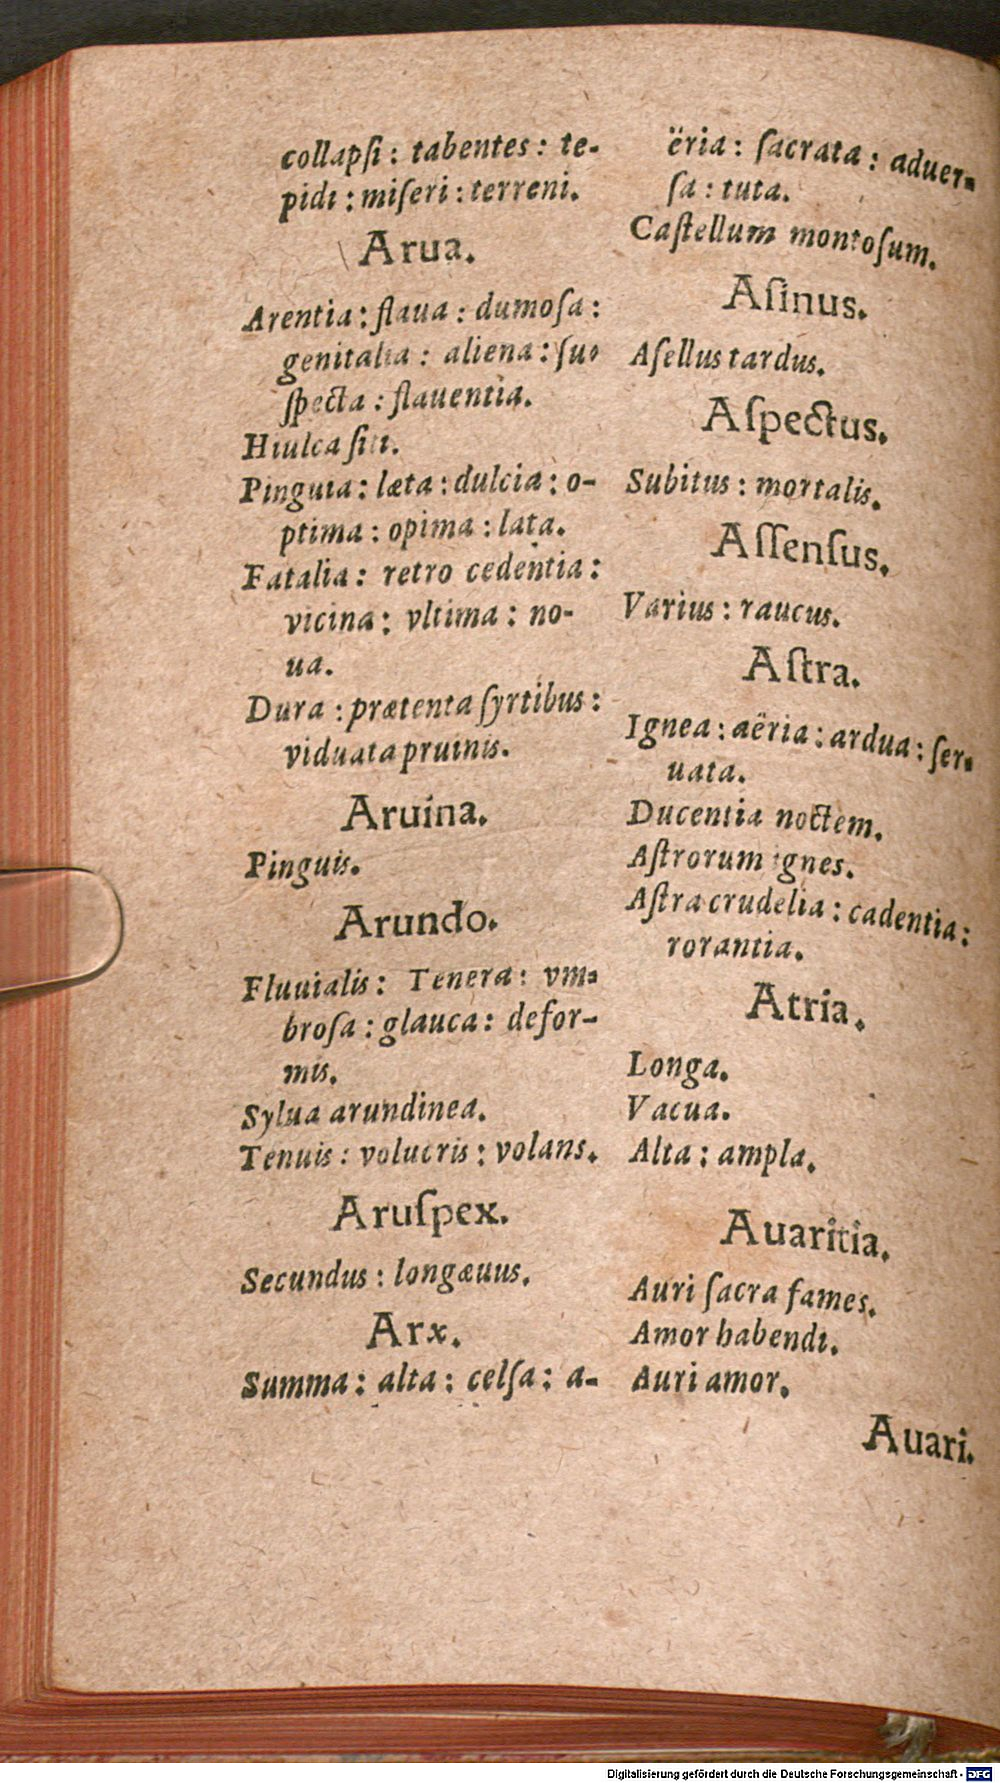 collapſi : tabentes : te-
pidi : miſeri : terreni.
Arua.
Arentia : flaua : dumoſa :
genitalia : aliena : ſu-
ſpecta : flauentia.
Hiulca ſiti.
Pinguia : læta : dulcia : o-
ptima : opima : lata.
Fatalia : retro cedentia :
vicina : vltima : no-
ua.
Dura : prætenta ſyrtibus :
viduata pruinis.
Aruina.
Pinguis.
Arundo.
Fluuialis : Tenera : vm-
broſa : glauca : defor-
mis.
Sylua arundinea.
Tenuis : volucris : volans.
Aruſpex.
Secundus : longæuus.
Arx.
Summa : alta : celſa : a-
ëria : ſacrata : aduer-
ſa : tuta.
Caſtellum montoſum.
Aſinus.
Aſellus tardus.
Aſpectus.
Subitus : mortalis.
Aſſenſus.
Varius : raucus.
Aſtra.
Ignea : aëria : ardua : ſer-
uata.
Ducentia noctem.
Aſtrorum ignes.
Aſtra crudelia : cadentia :
rorantia.
Atria.
Longa.
Vacua.
Alta : ampla.
Auaritia.
Auri ſacra fames.
Amor habendi.
Auri amor.
Auari.
Digitalisierung gefördert durch die Deutsche Forschungsgemeinschaft - DFG